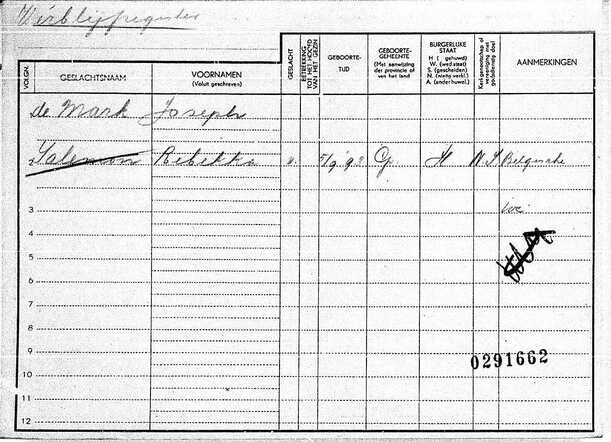 Verblijfregister
VOLGN. GESLACHTSNAAM VOORNAMEN (Voluit geschreven) GESLACHT BETREKKING TOT HET HOOFD VAN HET GEZIN GEBOORTE-TIJD GEBOORTE-GEMEENTE (Met aanwijzing der provincie of van het land) BURGERLIJKE STAAT H ( gehuwd) W. (wed.staat) S. (gescheiden) N. (nietig verkl.) A. (ander huwel.) Kerkgenootschap of vereeniging met godsdienstig doel AANMERKINGEN
de Mark Joseph
2 Salomon Rebekka v. 5/9 '9 H N I Belgische
3
4
5
6
7
8
9
0291662
10
11
12